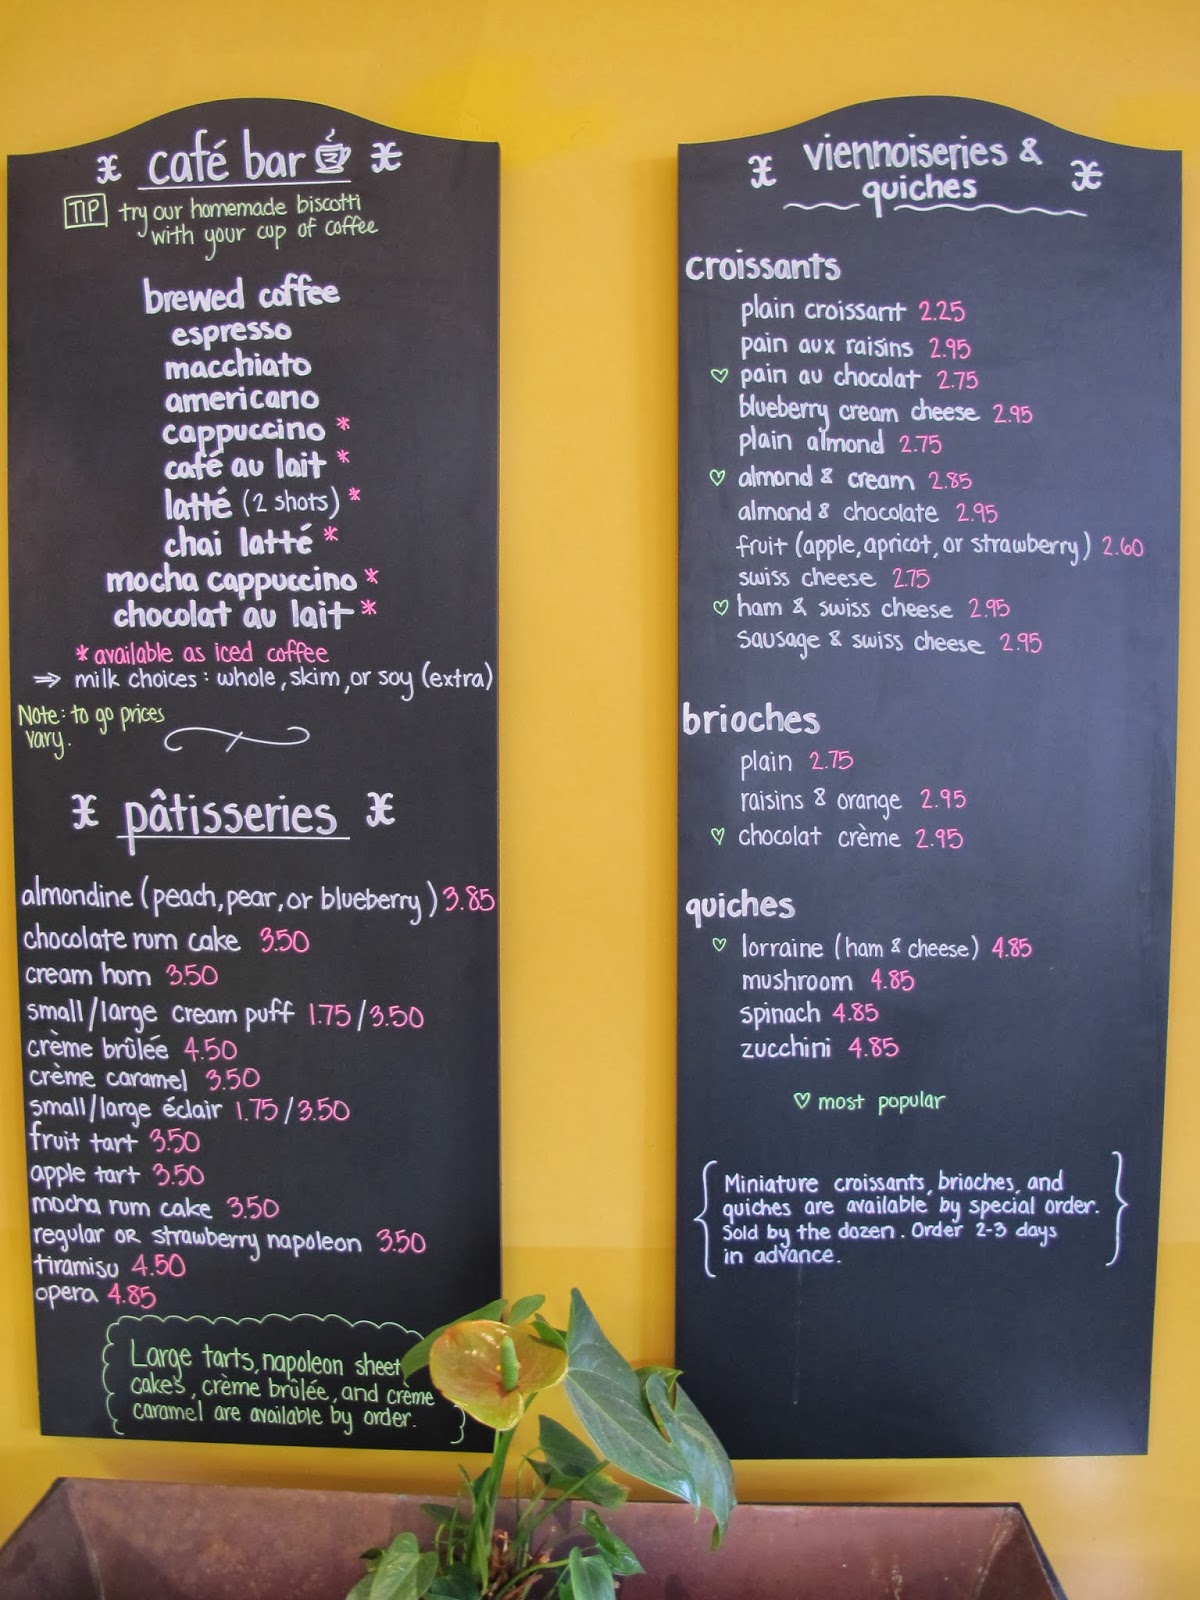 café bar
TIP try our homemade biscotti
with your cup of coffee
brewed coffee
espresso
macchiato
americano
cappuccino *
café au lait *
latté (2 shots) *
chai latté *
mocha cappuccino *
chocolat au lait *
* available as iced coffee
⇒ milk choices: whole, skim, or soy (extra)
Note: to go prices
vary.
pâtisseries
almondine (peach, pear, or blueberry) 3.85
chocolate rum cake 3.50
cream horn 3.50
small/large cream puff 1.75/3.50
crème brûlée 4.50
crème caramel 3.50
small/large éclair 1.75/3.50
fruit tart 3.50
apple tart 3.50
mocha rum cake 3.50
regular OR strawberry napoleon 3.50
tiramisu 4.50
opera 4.85
Large tarts, napoleon sheet
cakes, crème brûlée, and crème
caramel are available by order.
viennoiseries &
quiches
croissants
plain croissant 2.25
pain aux raisins 2.95
♡ pain au chocolat 2.75
blueberry cream cheese 2.95
plain almond 2.75
♡ almond & cream 2.85
almond & chocolate 2.95
fruit (apple, apricot, or strawberry) 2.60
swiss cheese 2.75
♡ ham & swiss cheese 2.95
sausage & swiss cheese 2.95
brioches
plain 2.75
raisins & orange 2.95
♡ chocolat crème 2.95
quiches
♡ lorraine (ham & cheese) 4.85
mushroom 4.85
spinach 4.85
zucchini 4.85
♡ most popular
{ Miniature croissants, brioches, and
quiches are available by special order.
Sold by the dozen. Order 2-3 days
in advance. }